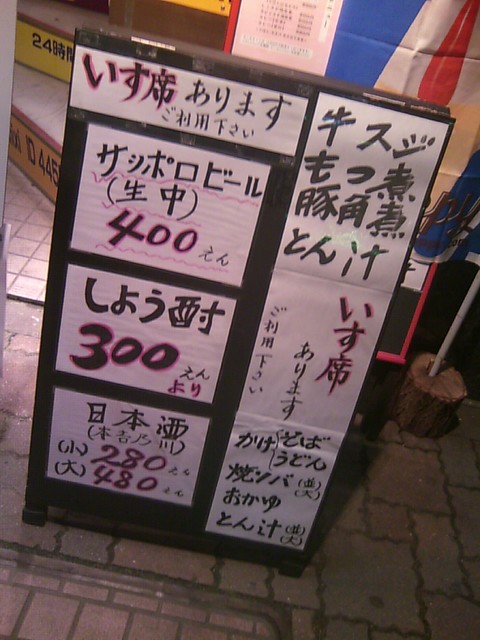 24時間
いす席 あります
ご利用下さい
サッポロビール
(生中)
400えん
しょう酎
300えん
より
日本酒
(本吉乃川)
(小)280えん
(大)480えん
牛スジ
もつ煮
豚角煮
とん汁
いす席
あります
ご利用下さい
かけ そば
うどん
焼ソバ(並大)
おかゆ
とん汁(並大)